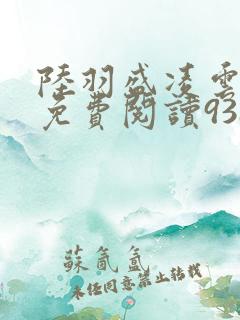 陸羽盛凌雲
免費閱讀93
蘇氤氳
未经同意禁止转载